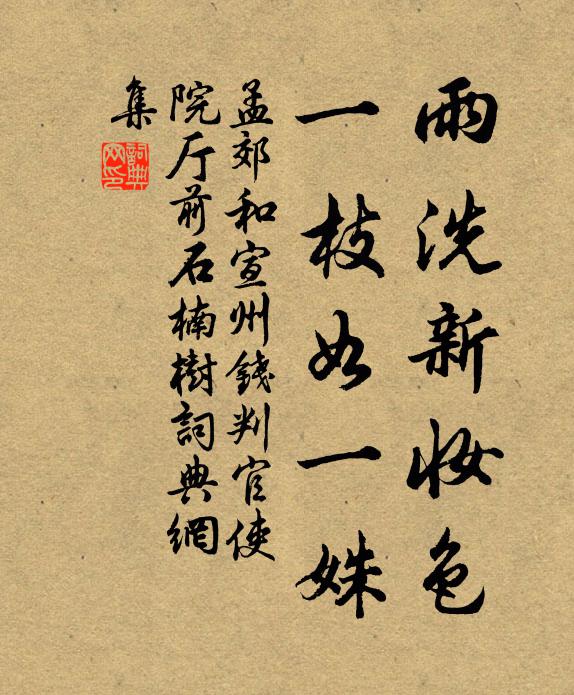 雨洗新妝色
一枝如一姝
孟郊和宣州錢判官使
院厅前石楠樹詞典網
集
詞典網印